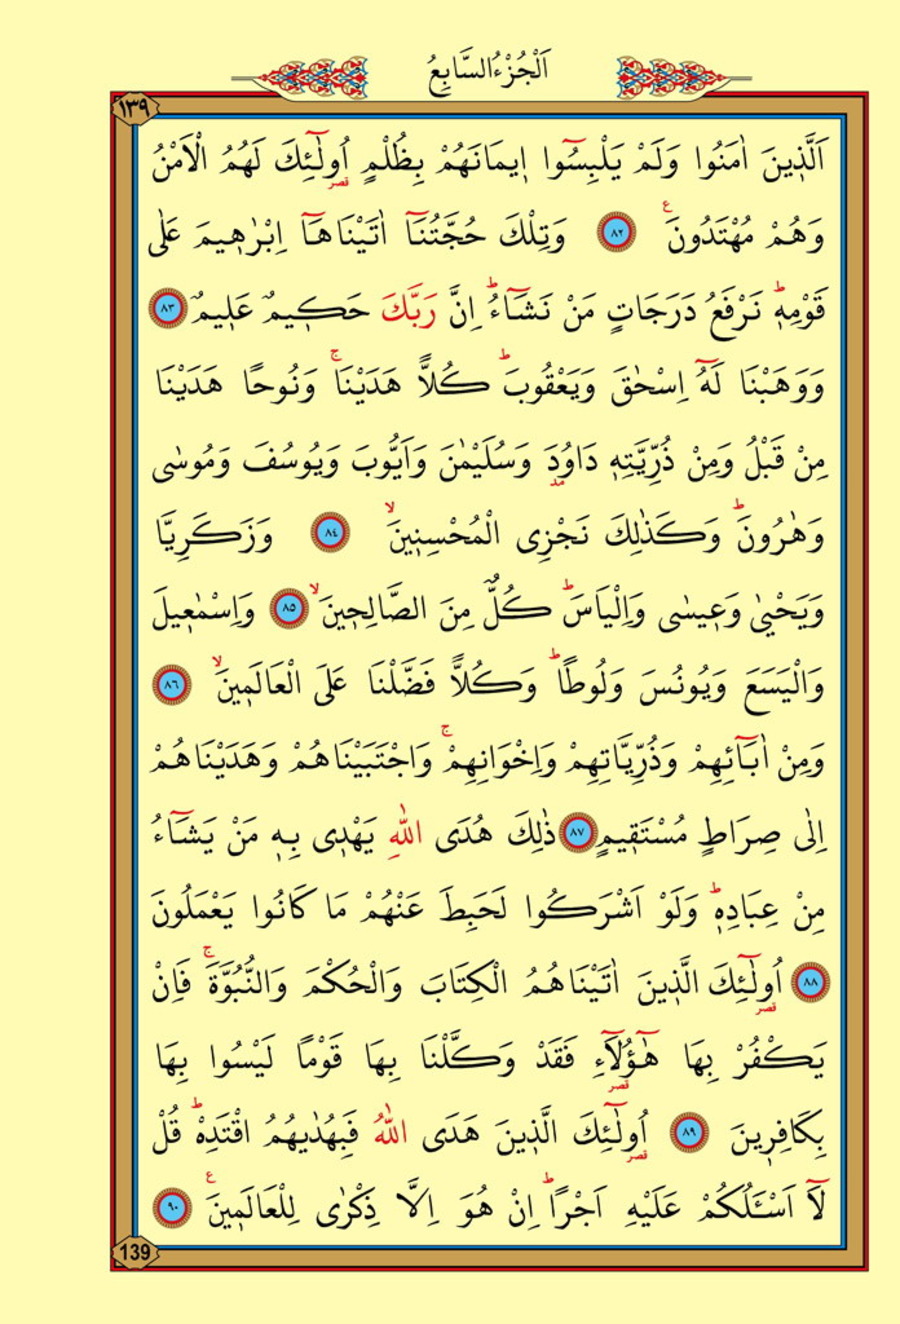 اَلْجُزْءُ السَّابِعُ
١٣٩
اَلَّذ۪ينَ اٰمَنُوا وَلَمْ يَلْبِسُٓوا ا۪يمَانَهُمْ بِظُلْمٍ اُو۬لٰٓئِكَ لَهُمُ الْاَمْنُ
قصر
وَهُمْ مُهْتَدُونَ۟ ٨٢ وَتِلْكَ حُجَّتُنَٓا اٰتَيْنَاهَٓا اِبْرٰه۪يمَ عَلٰى
قَوْمِه۪ۜ نَرْفَعُ دَرَجَاتٍ مَنْ نَشَٓاءُۜ اِنَّ رَبَّكَ حَك۪يمٌ عَل۪يمٌ ٨٣
وَوَهَبْنَا لَهُٓ اِسْحٰقَ وَيَعْقُوبَۜ كُلًّا هَدَيْنَاۚ وَنُوحًا هَدَيْنَا
مِنْ قَبْلُ وَمِنْ ذُرِّيَّتِه۪ دَاوُ۫دَ وَسُلَيْمٰنَ وَاَيُّوبَ وَيُوسُفَ وَمُوسٰى
مد
وَهٰرُونَۜ وَكَذٰلِكَ نَجْزِى الْمُحْسِن۪ينَۙ ٨٤ وَزَكَرِيَّا
وَيَحْيٰى وَع۪يسٰى وَاِلْيَاسَۜ كُلٌّ مِنَ الصَّالِح۪ينَۙ ٨٥ وَاِسْمٰع۪يلَ
وَالْيَسَعَ وَيُونُسَ وَلُوطًاۜ وَكُلًّا فَضَّلْنَا عَلَى الْعَالَم۪ينَۙ ٨٦
وَمِنْ اٰبَٓائِهِمْ وَذُرِّيَّاتِهِمْ وَاِخْوَانِهِمْۚ وَاجْتَبَيْنَاهُمْ وَهَدَيْنَاهُمْ
اِلٰى صِرَاطٍ مُسْتَق۪يمٍ ٨٧ ذٰلِكَ هُدَى اللّٰهِ يَهْد۪ى بِه۪ مَنْ يَشَٓاءُ
مِنْ عِبَادِه۪ۜ وَلَوْ اَشْرَكُوا لَحَبِطَ عَنْهُمْ مَا كَانُوا يَعْمَلُونَ
٨٨ اُو۬لٰٓئِكَ الَّذ۪ينَ اٰتَيْنَاهُمُ الْكِتَابَ وَالْحُكْمَ وَالنُّبُوَّةَۚ فَاِنْ
قصر
يَكْفُرْ بِهَا هٰٓؤُ۬لَٓاءِ فَقَدْ وَكَّلْنَا بِهَا قَوْمًا لَيْسُوا بِهَا
قصر
بِكَافِر۪ينَ ٨٩ اُو۬لٰٓئِكَ الَّذ۪ينَ هَدَى اللّٰهُ فَبِهُدٰيهُمُ اقْتَدِهْۜ قُلْ
قصر
لَٓا اَسْـَٔلُكُمْ عَلَيْهِ اَجْرًاۜ اِنْ هُوَ اِلَّا ذِكْرٰى لِلْعَالَم۪ينَ۟ ٩٠
139